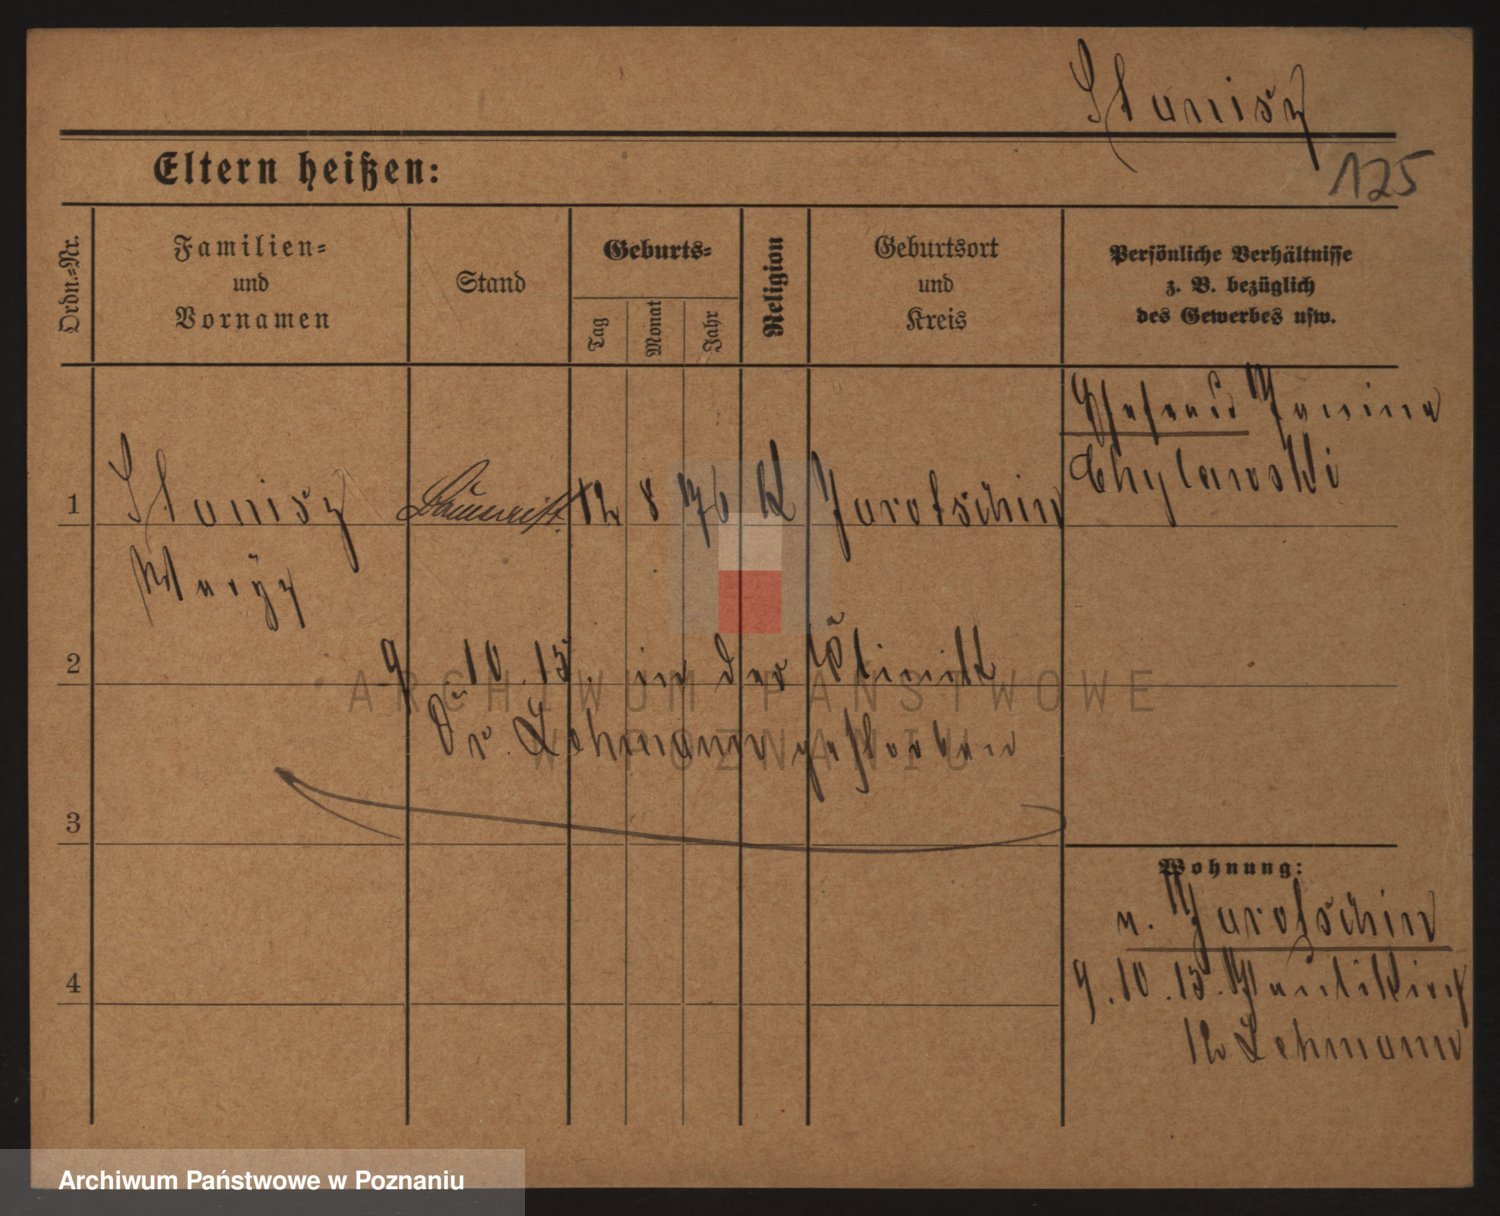 Stanisz
125
Eltern heißen:
Ordn.=Nr.
Familien=
und
Vornamen
Stand
Geburts=
Tag
Monat
Jahr
Religion
Geburtsort
und
Kreis
Persönliche Verhältnisse
z. B. bezüglich
des Gewerbes usw.
Ehefrau Janina
Chylewski
1 Stanisz 12 8 76 k Jarotschin
2
9.10.13. in der Klinik
Dr. Lehmann gestorben
3
Wohnung:
n. Jarotschin
9.10.13.
12 Lehmann
4
ARCHIWUM PAŃSTWOWE
W POZNANIU
Archiwum Państwowe w Poznaniu